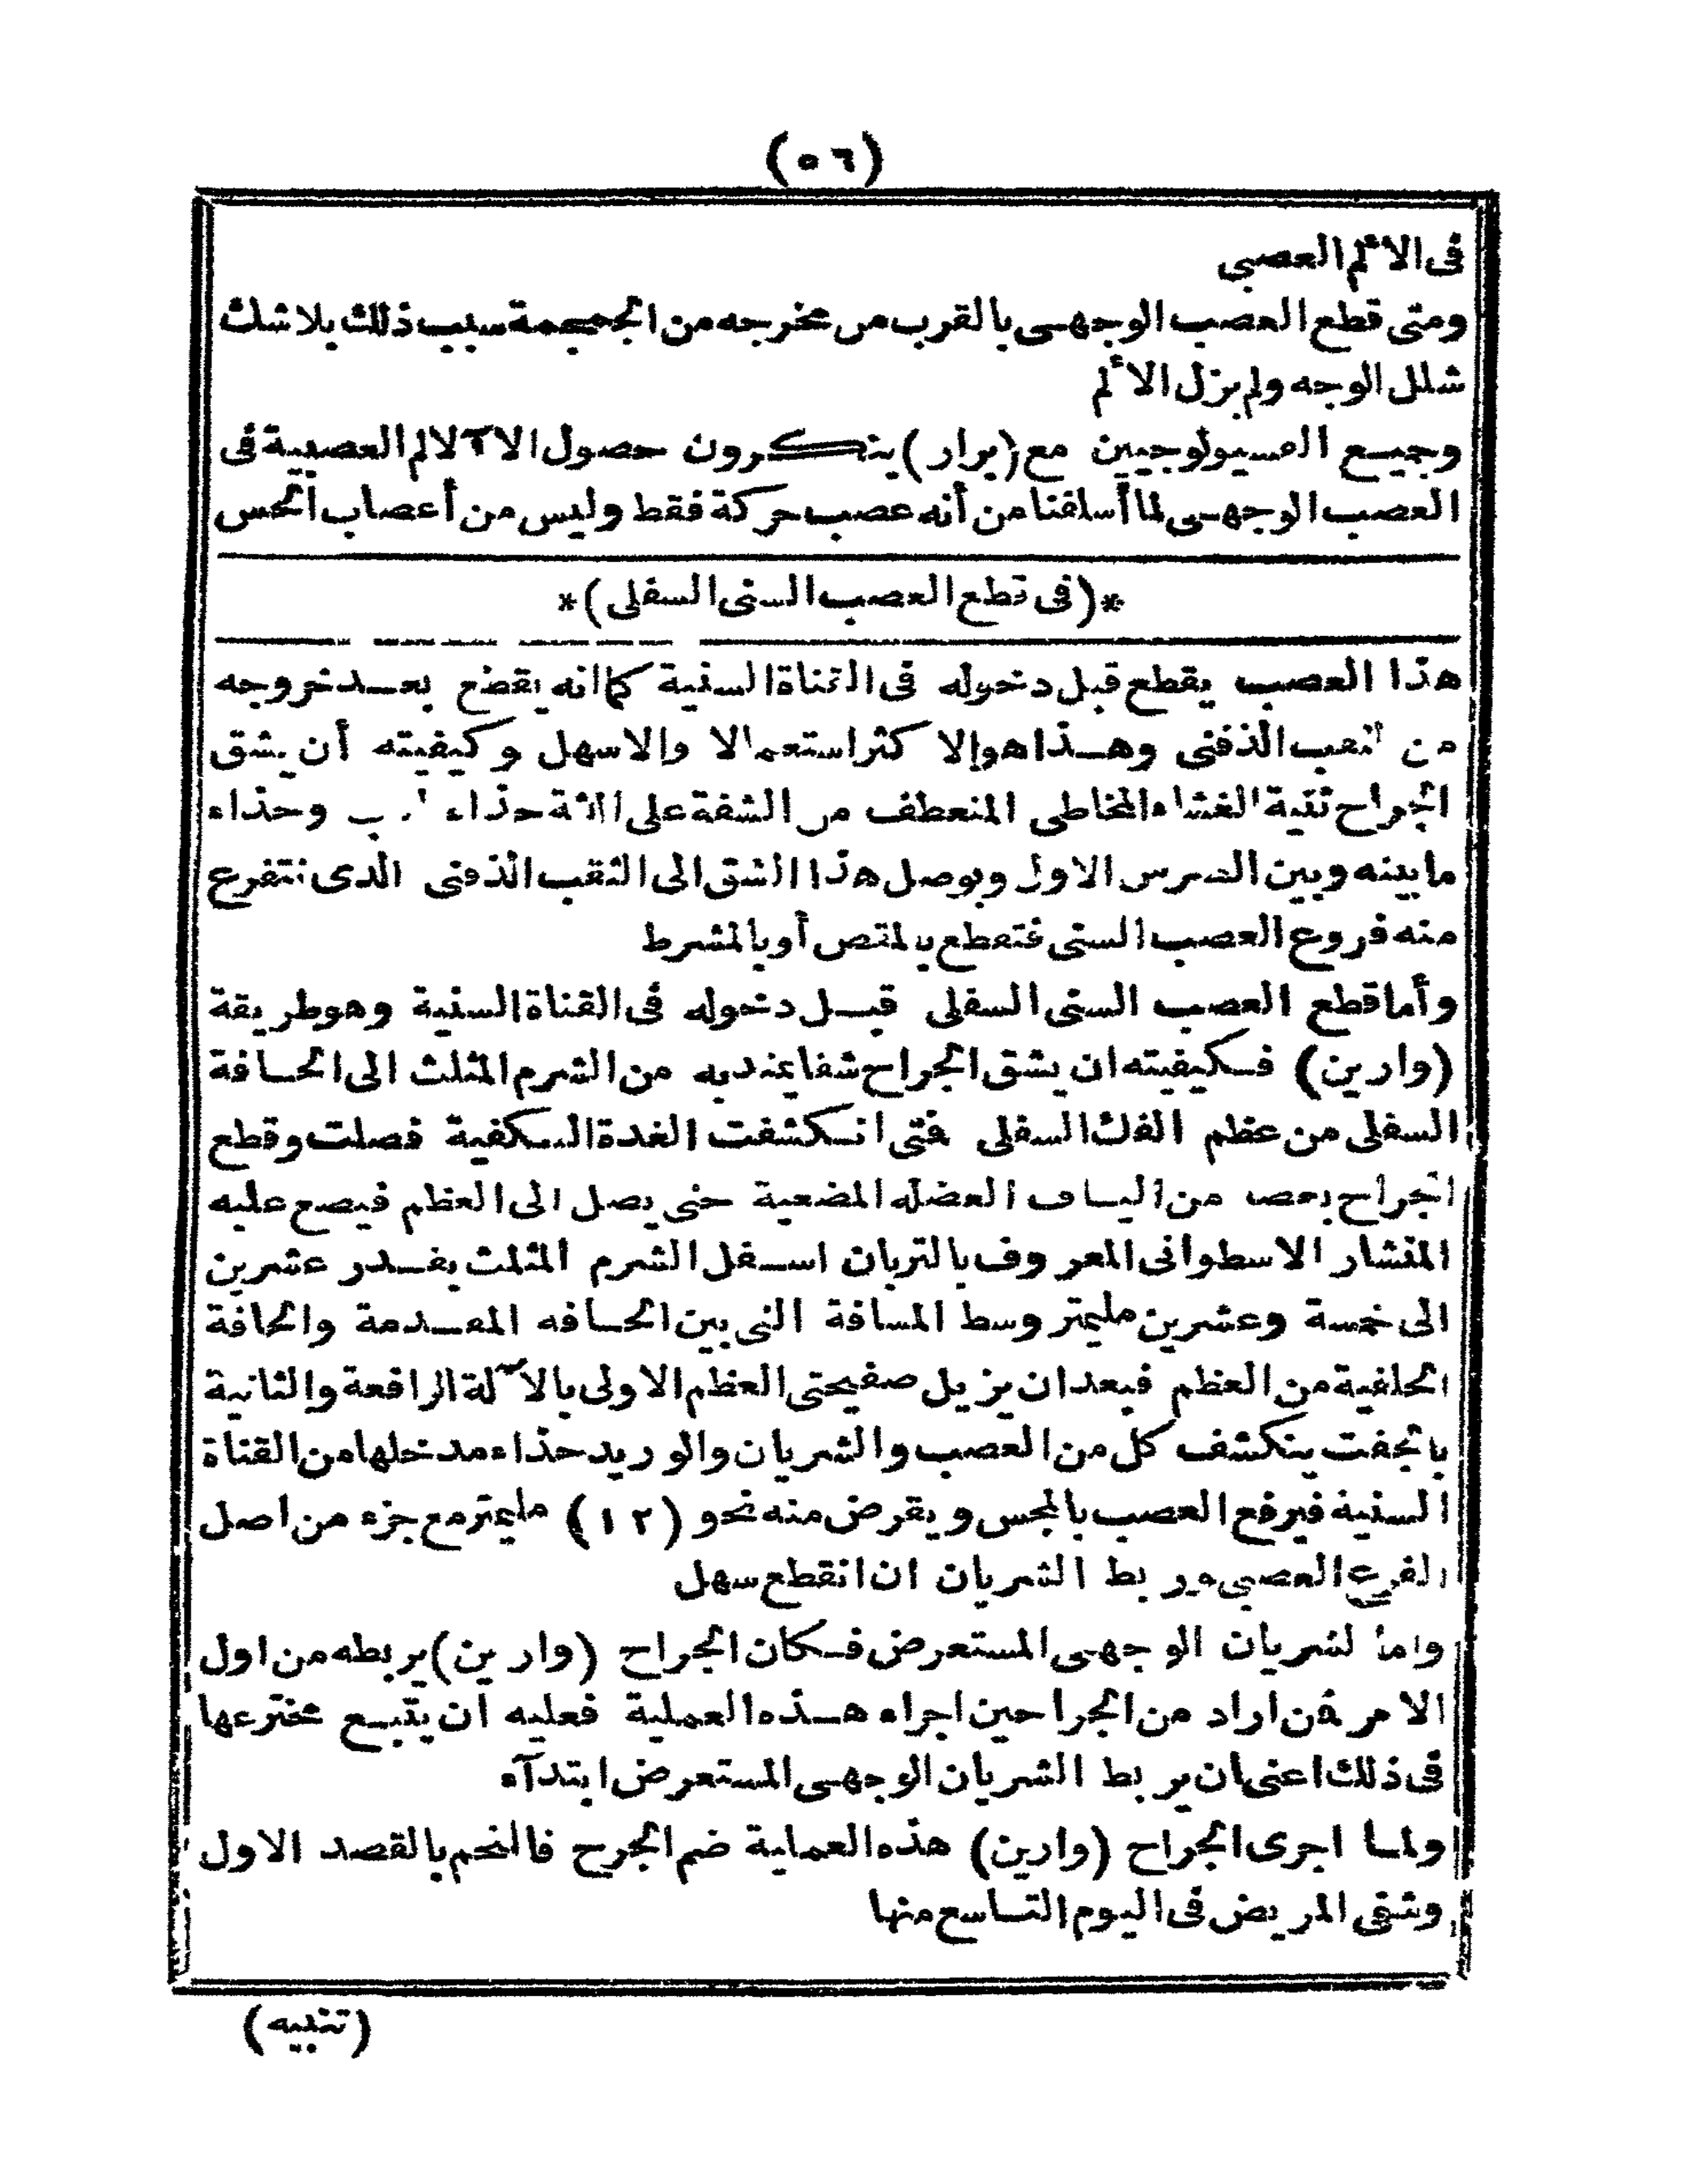 (٥٦)
فى الألم العصبى
ومتى قطع العصب الوجهى بالقرب من مخرجه من الجمجمة سبب ذلك بلا شك
شلل الوجه ولم يزل الألم
وجميع الفسيولوجيين مع (برار) ينكرون حصول الآلام العصبية فى
العصب الوجهى لما أسلفنا من أنه عصب حركة فقط وليس من أعصاب الحس
*(فى قطع العصب السنى السفلى)*
هذا العصب يقطع قبل دخوله فى القناة السنية كما انه يقطع بعد خروجه
من الثقب الذقنى وهذا هو الاكثر استعمالا والاسهل وكيفيته أن يشق
الجراح ثنية الغشاء المخاطى المنعطف من الشفة على اللثة حذاء وحذاء
ما بينه وبين الضرس الاول ويوصل هذا الشق الى الثقب الذقنى الذى تتفرع
منه فروع العصب السنى فتقطع بالمقص أو بالمشرط
وأما قطع العصب السنى السفلى قبل دخوله فى القناة السنية وهو طريقة
(وارين) فكيفيته ان يشق الجراح شقا يمتد به من الشرم المثلث الى الحافة
السفلى من عظم الفك السفلى فتى انكشفت الغدة النكفية فصلت وقطع
الجراح بعض من الياف العضلة المضغية حتى يصل الى العظم فيضع عليه
المنشار الاسطوانى المعروف بالتربان اسفل الشرم المثلث بقدر عشرين
الى خمسة وعشرين مليمتر وسط المسافة التى بين الحافه المقدمة والحافة
الخلفية من العظم فبعد ان يزيل صفيحتى العظم الاولى بالآلة الرافعة والثانية
بالجفت ينكشف كل من العصب والشريان والوريد حذاء مدخلها من القناة
السنية فيرفع العصب بالمجس ويقرض منه نحو (١٢) مليمتر مع جزء من اصل
الفرع العصبى وربط الشريان ان انقطع سهل
واما لشريان الوجهى المستعرض فكان الجراح (وارين) يربطه من اول
الامر فمن اراد من الجراحين اجراء هذه العملية فعليه أن يتبع مخترعها
فى ذلك اعنى ان يربط الشريان الوجهى المستعرض ابتدآء
ولما اجرى الجراح (وارين) هذه العملية ضم الجرح فالتحم بالقصد الاول
وشفى المريض فى اليوم التاسع منها
(تنبيه)